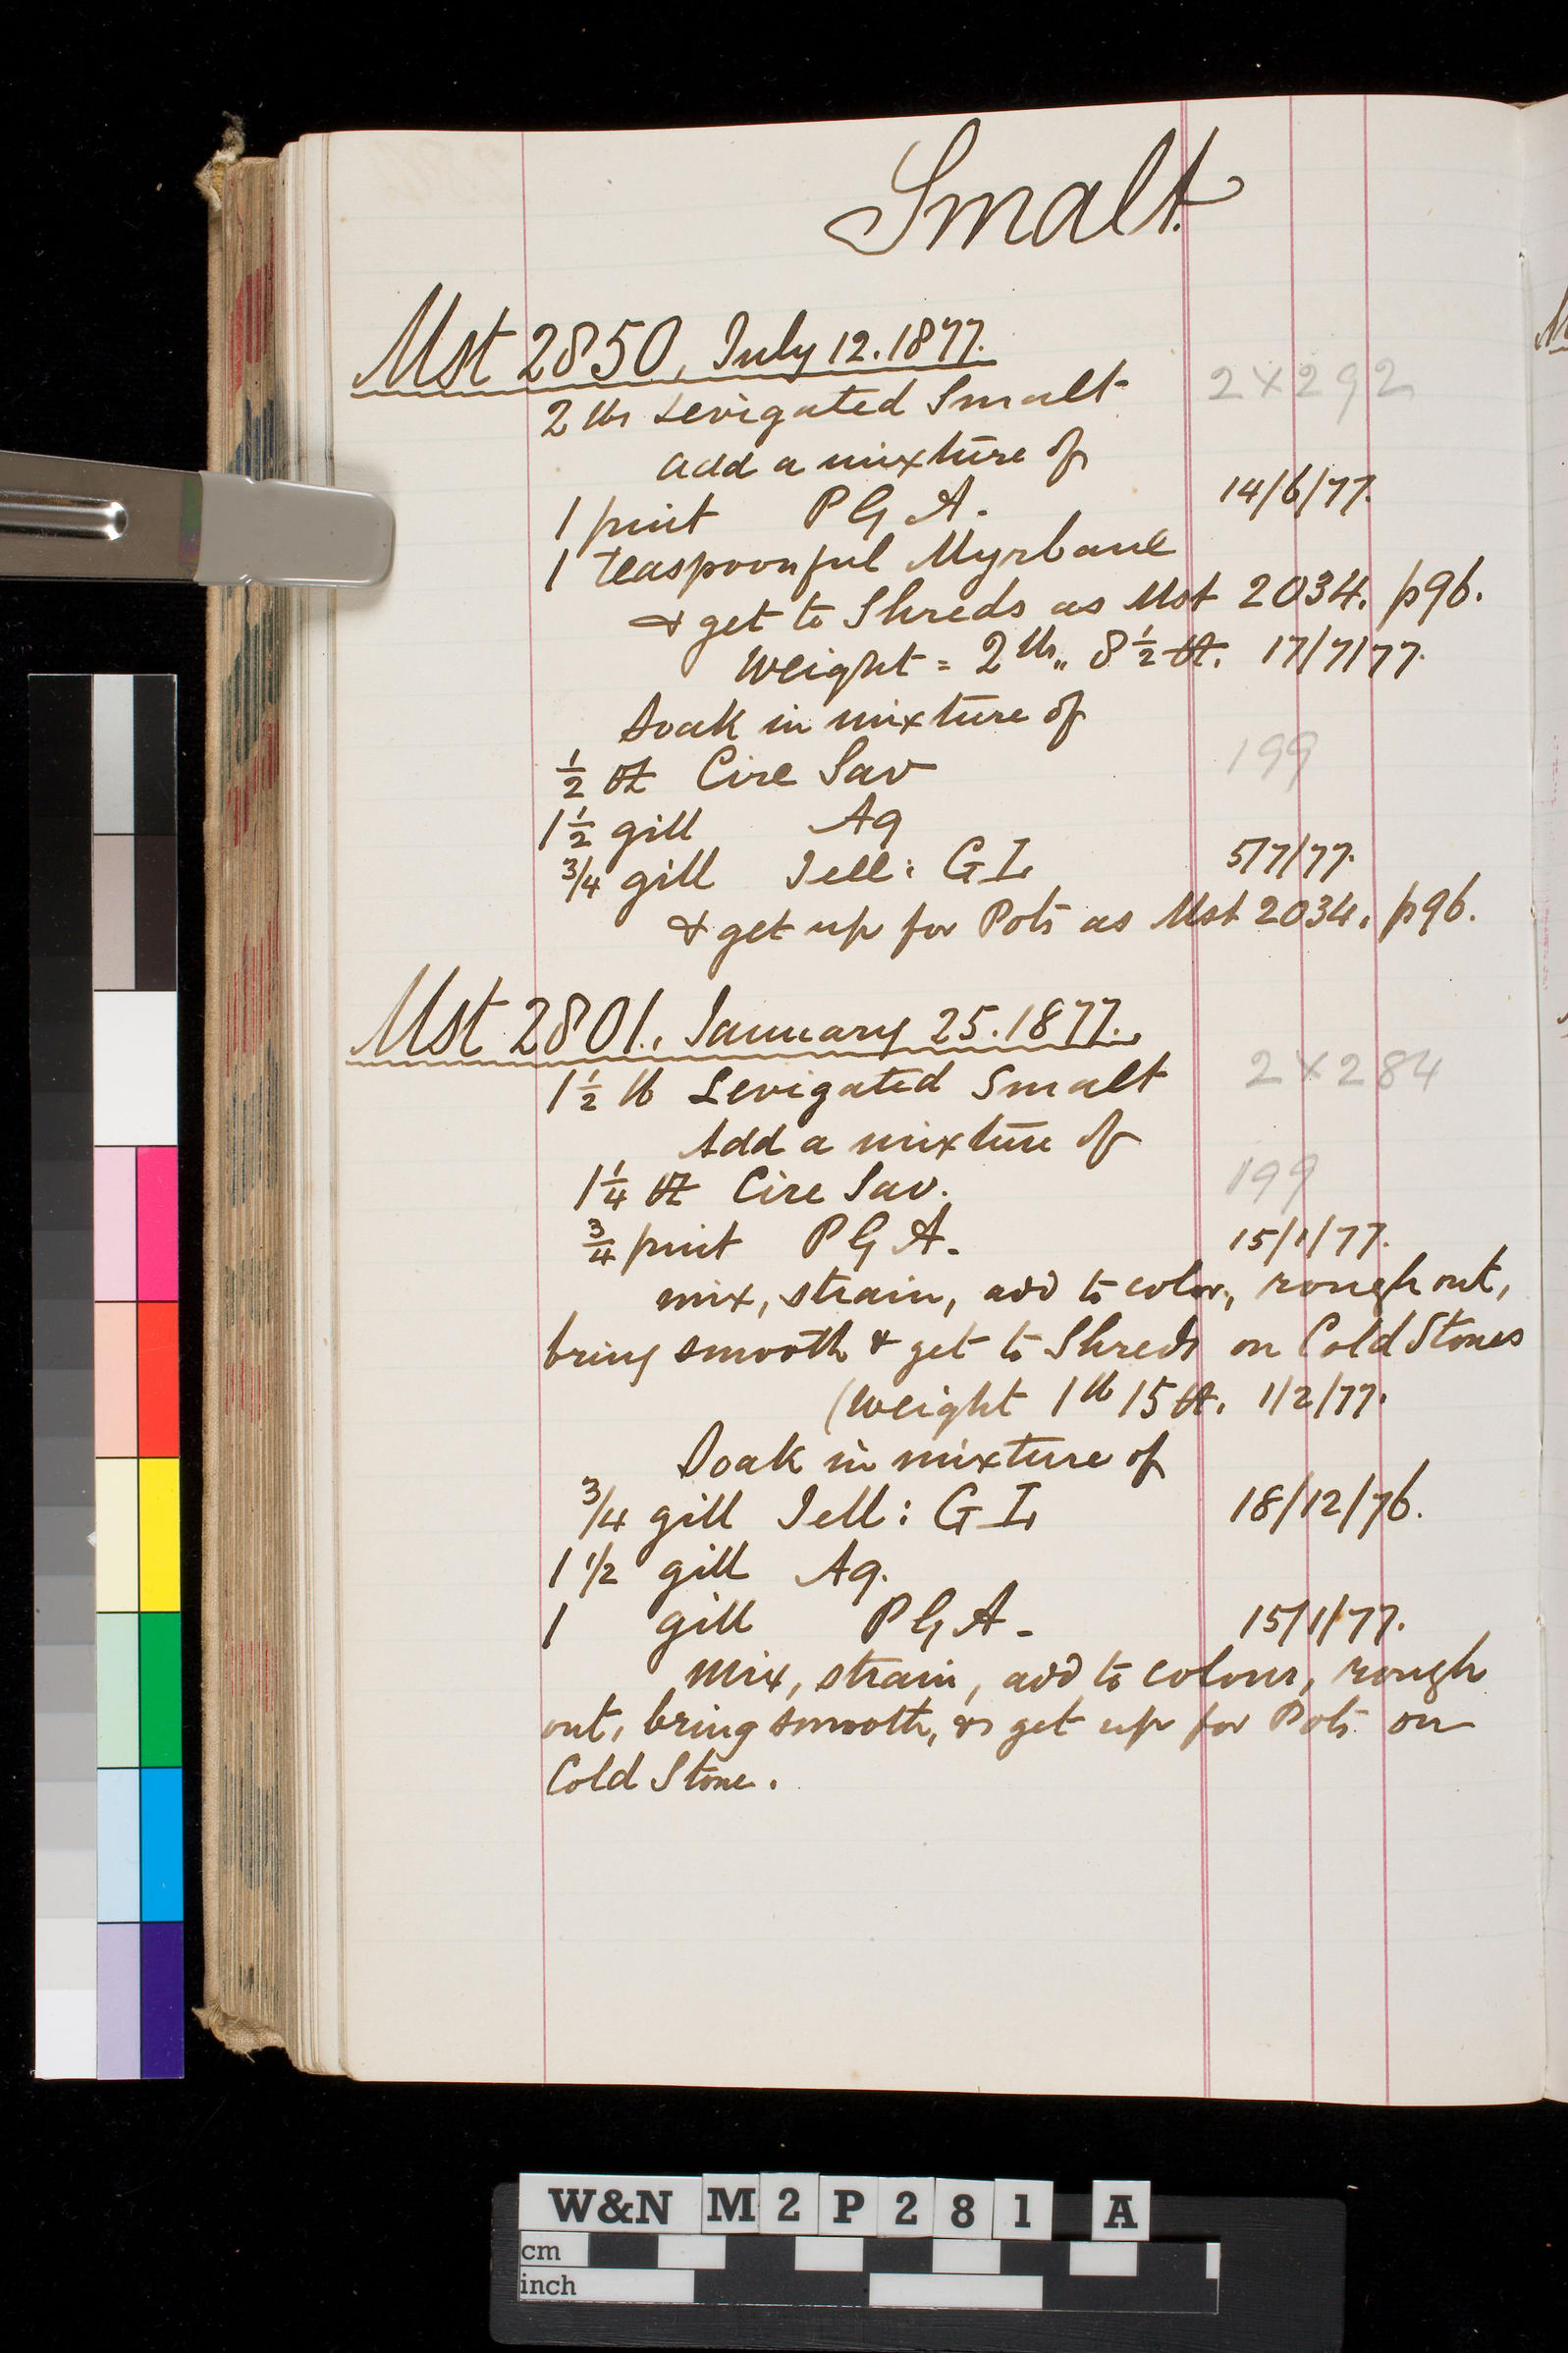 Smalt.
Mst 2850, July 12. 1877.
2 lbs Levigated Smalt 2 X 292
add a mixture of
1 pint P G A. 14/6/77.
1 teaspoonful Myrbane
& get to Shreds as Mst 2034. p96.
Weight = 2 lbs,, 8 1/2 oz. 17/7/77.
Soak in mixture of
1/2 oz Cire Sav 199
1 1/2 gill Aq
3/4 gill Jell: G I, 5/7/77.
& get up for Pots as Mst 2034. p96.
Mst 2801., January 25. 1877.
1 1/2 lb Levigated Smalt 2 X 284
Add a mixture of
1 1/4 oz Cire Sav. 199
3/4 pint P G A. 15/1/77.
mix, strain, add to color, rough out,
bring smooth & get to Shreds on Cold Stones
(Weight 1 lb 15 oz. 1/2/77.
Soak in mixture of
3/4 gill Jell: G I, 18/12/76.
1 1/2 gill Aq.
1 gill P G A. 15/1/77.
mix, strain, add to colour, rough
out, bring smooth, & get up for Pots on
Cold Stone.
W&N M 2 P 2 8 1 A
cm
inch